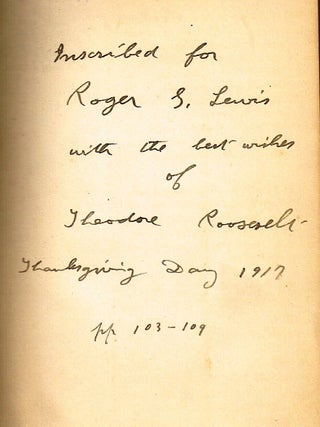 Inscribed for
Roger S. Lewis
with the best wishes
of
Theodore Roosevelt
Thanksgiving Day 1917
pp 103-109